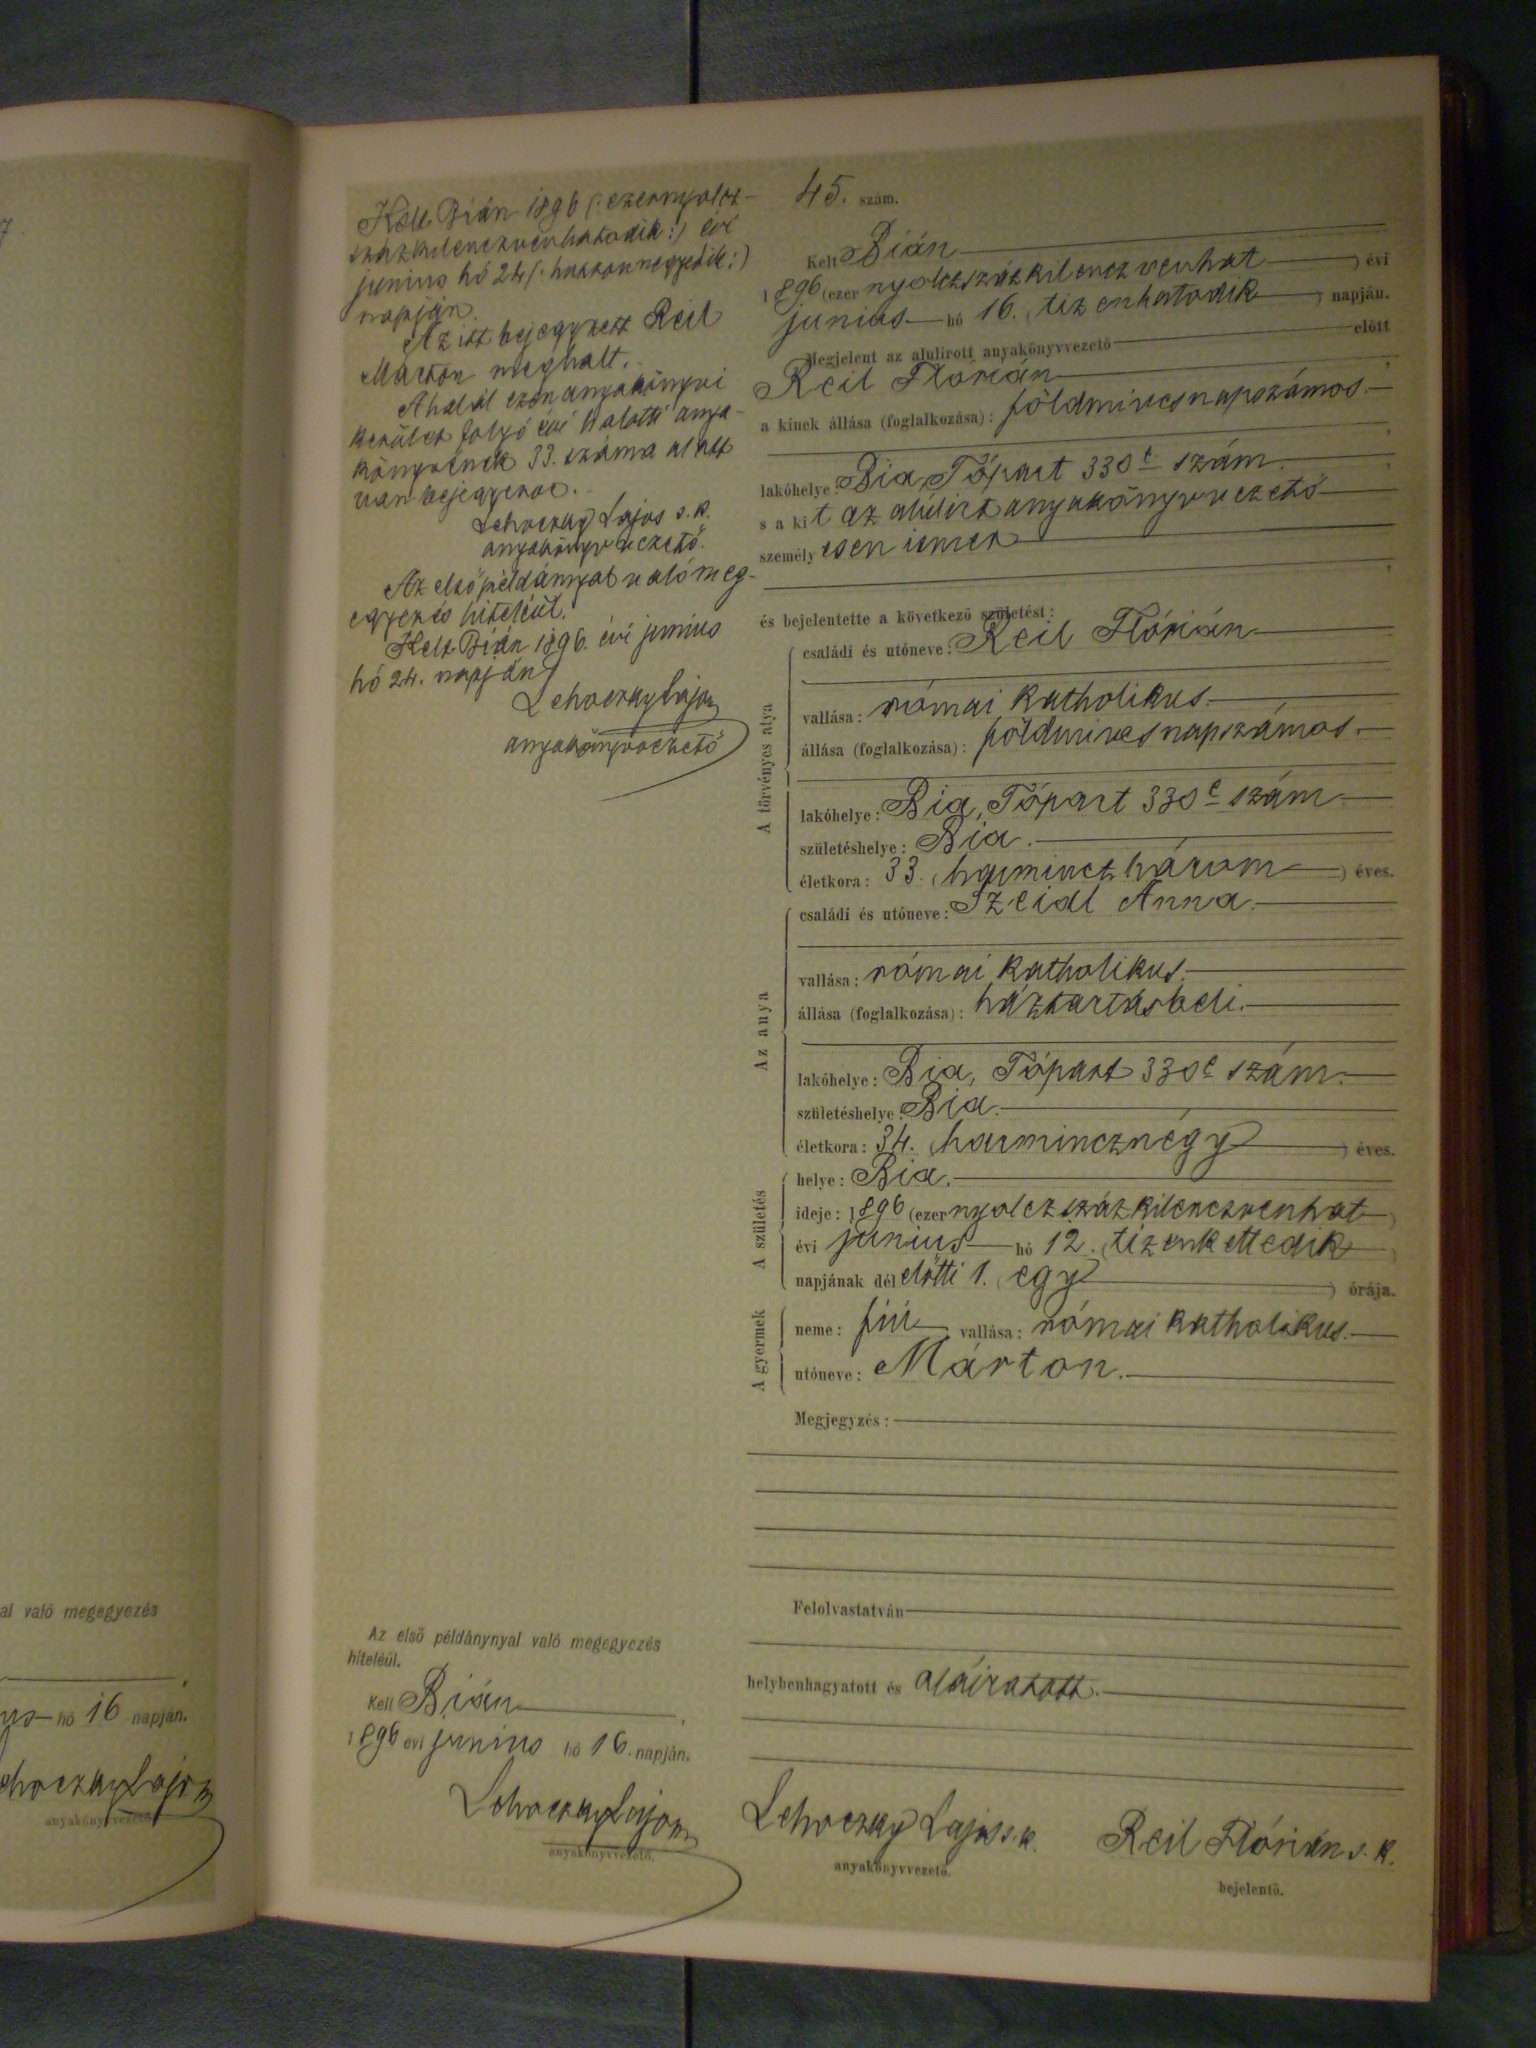 7.
al való megegyezés
hó 16 napján.
anyakönyvvezető.
Kelt Bián 1896 (: ezernyolcz-
százkilenczvenhatodik :) évi
junius hó 24 (: huszonnegyedik :)
napján.
Az itt bejegyzett Reil
Márton meghalt.
A halál ezen anyakönyvi
kerület folyó évi halotti anya-
könyvének 33. száma alatt
van bejegyezve.
Lehoczky Lajos s. k.
anyakönyvvezető.
Az első példánynyal való meg-
egyezés hiteléül.
Kelt Bián 1896. évi junius
hó 24. napján
Lehoczky Lajos
anyakönyvvezető
Az első példánynyal való megegyezés
hiteléül.
Kelt Bián
1896 évi junius hó 16. napján.
Lehoczky Lajos
anyakönyvvezető.
45. szám.
Kelt Bián
1896 (ezer nyolczszázkilenczvenhat ) évi
junius hó 16. (tizenhatodik ) napján.
Megjelent az alulirott anyakönyvvezető előtt
Reil Flórián ,
a kinek állása (foglalkozása): földmivesnapszámos.
,
lakóhelye: Bia, Tópart 330 c szám. ,
s a kit az alulirt anyakönyvvezető
személyesen ismer
,
és bejelentette a következő születést:
A törvényes atya
családi és utóneve: Reil Flórián
vallása: római katholikus.
állása (foglalkozása): földmivesnapszámos.
lakóhelye: Bia, Tópart 330 c szám.
születéshelye: Bia.
életkora: 33. (harminczhárom ) éves.
Az anya
családi és utóneve: Szeidl Anna.
vallása: római katholikus.
állása (foglalkozása): háztartásbeli.
lakóhelye: Bia, Tópart 330 c szám.
születéshelye: Bia.
életkora: 34. (harmincznégy ) éves.
A születés
helye: Bia.
ideje: 1896 (ezer nyolczszázkilenczvenhat )
évi junius hó 12. (tizenkettedik )
napjának délelőtti 1. (egy ) órája.
A gyermek
neme: fiú vallása: római katholikus.
utóneve: Márton.
Megjegyzés:
Felolvastatván
helybenhagyatott és aláiratott.
Lehoczky Lajos s. k.
anyakönyvvezető.
Reil Flórián s. k.
bejelentő.